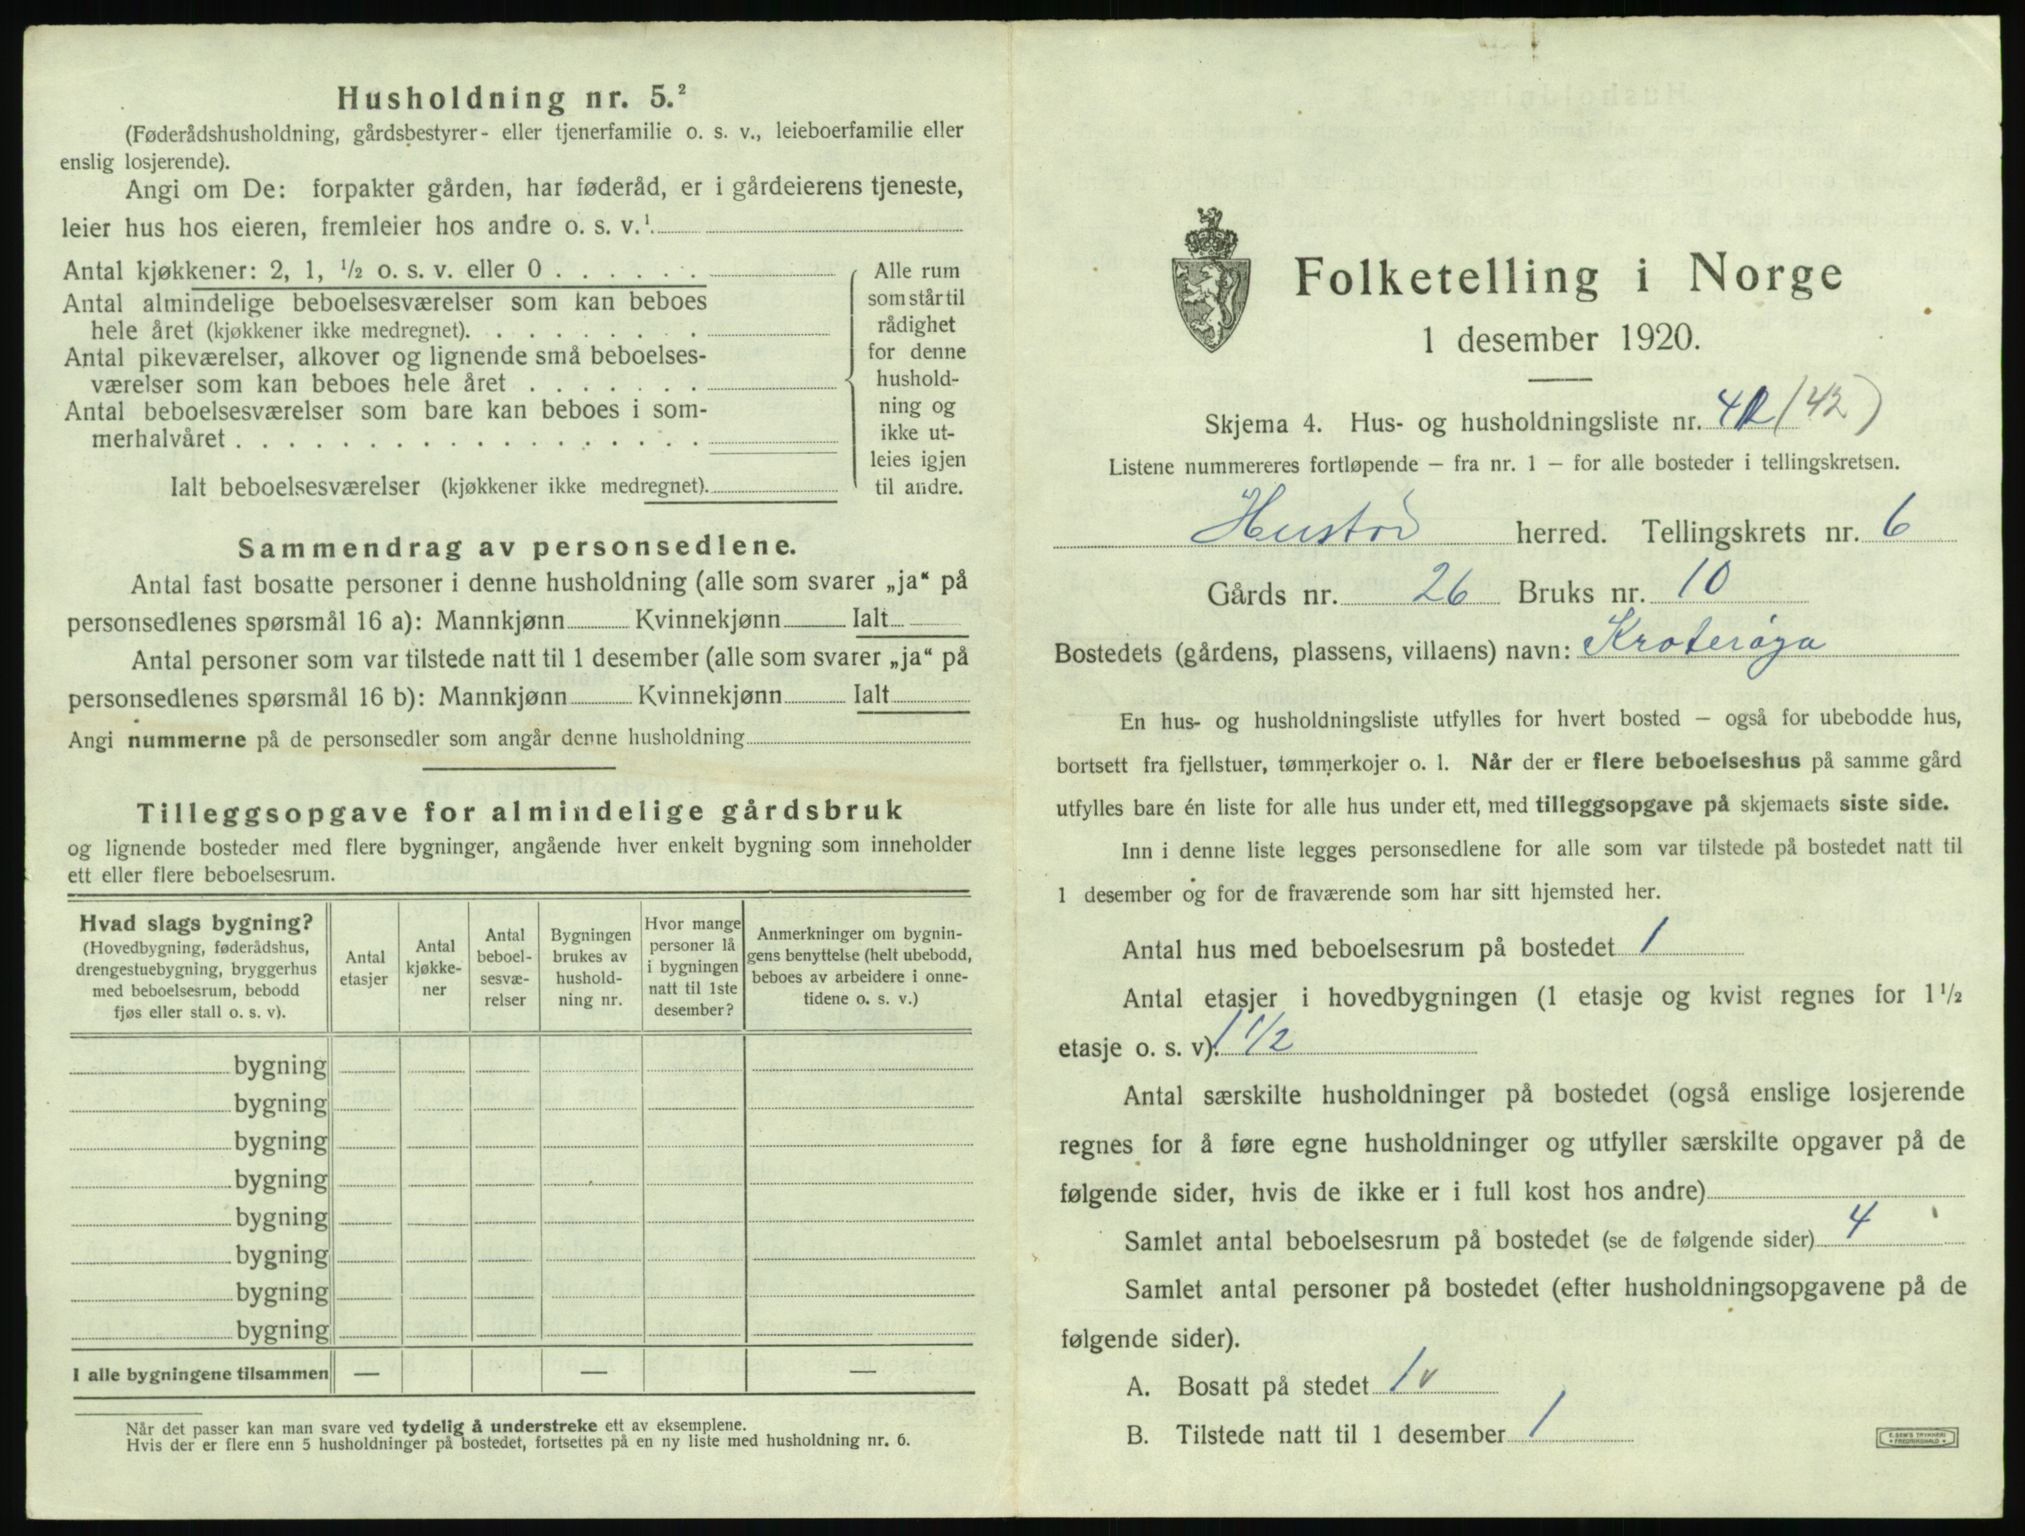 Husholdning nr. 5.²
(Føderådshusholdning, gårdsbestyrer- eller tjenerfamilie o. s. v., leieboerfamilie eller
enslig losjerende).
Angi om De: forpakter gården, har føderåd, er i gårdeierens tjeneste,
leier hus hos eieren, fremleier hos andre o. s. v.¹
Antal kjøkkener: 2, 1, ½ o. s. v. eller 0 . . . . . .
Antal almindelige beboelsesværelser som kan beboes
hele året (kjøkkener ikke medregnet). . . . . . . . .
Antal pikeværelser, alkover og lignende små beboelses-
værelser som kan beboes hele året . . . . . . .
Antal beboelsesværelser som bare kan beboes i som-
merhalvåret . . . . . . . . . . . . . . . . . .
Ialt beboelsesværelser (kjøkkener ikke medregnet).
Alle rum
som står til
rådighet
for denne
hushold-
ning og
ikke ut-
leies igjen
til andre.
Sammendrag av personsedlene.
Antal fast bosatte personer i denne husholdning (alle som svarer „ja“ på
personsedlenes spørsmål 16 a): Mannkjønn Kvinnekjønn Ialt
Antal personer som var tilstede natt til 1 desember (alle som svarer „ja“ på
personsedlenes spørsmål 16 b): Mannkjønn Kvinnekjønn Ialt
Angi nummerne på de personsedler som angår denne husholdning
Tilleggsopgave for almindelige gårdsbruk
og lignende bosteder med flere bygninger, angående hver enkelt bygning som inneholder
ett eller flere beboelsesrum.
Hvad slags bygning?
(Hovedbygning, føderådshus,
drengestuebygning, bryggerhus
med beboelsesrum, bebodd
fjøs eller stall o. s. v).
Antal
etasjer
Antal
kjøkke-
ner
Antal
beboel-
sesvæ-
relser
Bygningen
brukes av
hushold-
ning nr.
Hvor mange
personer lå
i bygningen
natt til 1ste
desember?
Anmerkninger om bygnin-
gens benyttelse (helt ubebodd,
beboes av arbeidere i onne-
tidene o. s. v.)
bygning
bygning
bygning
bygning
bygning
bygning
bygning
bygning
I alle bygningene tilsammen — — —
Når det passer kan man svare ved tydelig å understreke ett av eksemplene.
Hvis der er flere enn 5 husholdninger på bostedet, fortsettes på en ny liste med husholdning nr. 6.
Folketelling i Norge
1 desember 1920.
Skjema 4. Hus- og husholdningsliste nr. (42)
Listene nummereres fortløpende – fra nr. 1 – for alle bosteder i tellingskretsen.
Hustad herred. Tellingskrets nr. 6
Gårds nr. 26 Bruks nr. 10
Bostedets (gårdens, plassens, villaens) navn:
En hus- og husholdningsliste utfylles for hvert bosted – også for ubebodde hus,
bortsett fra fjellstuer, tømmerkojer o. l. Når der er flere beboelseshus på samme gård
utfylles bare én liste for alle hus under ett, med tilleggsopgave på skjemaets siste side.
Inn i denne liste legges personsedlene for alle som var tilstede på bostedet natt til
1 desember og for de fraværende som har sitt hjemsted her.
Antal hus med beboelsesrum på bostedet 1
Antal etasjer i hovedbygningen (1 etasje og kvist regnes for 1½
etasje o. s. v). 1 1/2
Antal særskilte husholdninger på bostedet (også enslige losjerende
regnes for å føre egne husholdninger og utfyller særskilte opgaver på de
følgende sider, hvis de ikke er i full kost hos andre)
Samlet antal beboelsesrum på bostedet (se de følgende sider) 4
Samlet antal personer på bostedet (efter husholdningsopgavene på de
følgende sider).
A. Bosatt på stedet 1 v
B. Tilstede natt til 1 desember 1
E. SEM'S TRYKKERI
FREDRIKSHALD